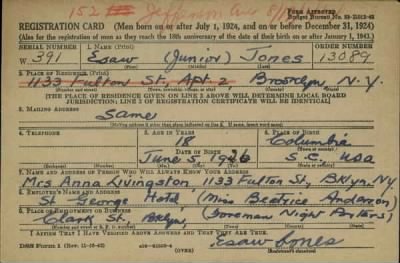 152 Jefferson Ave
REGISTRATION CARD—(Men born on or after July 1, 1924, and on or before December 31, 1924)
(Also for the registration of men as they reach the 18th anniversary of the date of their birth on or after January 1, 1943.)
SERIAL NUMBER 1. NAME (Print) ORDER NUMBER
W 391 Esaw (Junior) Jones 13089
(First) (Middle) (Last)
2. PLACE OF RESIDENCE (Print)
1133 Fulton St, Apt. 2 Brooklyn N.Y.
[THE PLACE OF RESIDENCE GIVEN ON LINE 2 ABOVE WILL DETERMINE LOCAL BOARD
JURISDICTION; LINE 2 OF REGISTRATION CERTIFICATE WILL BE IDENTICAL]
3. MAILING ADDRESS
Same
[Mailing address if other than place indicated on line 2. If same, insert word same]
4. TELEPHONE 5. AGE IN YEARS 6. PLACE OF BIRTH
18 Columbia
DATE OF BIRTH
June 5 1926 S.C. USA
7. NAME AND ADDRESS OF PERSON WHO WILL ALWAYS KNOW YOUR ADDRESS
Mrs Anna Livingston 1133 Fulton St, Bklyn, NY
8. EMPLOYER'S NAME AND ADDRESS
St George Hotel (Miss Beatrice Anderson)
9. PLACE OF EMPLOYMENT OR BUSINESS
Clark St, Bklyn, (Foreman Night Porters)
I AFFIRM THAT I HAVE VERIFIED ABOVE ANSWERS AND THAT THEY ARE TRUE.
DSS Form 1 (OVER) Esaw Jones